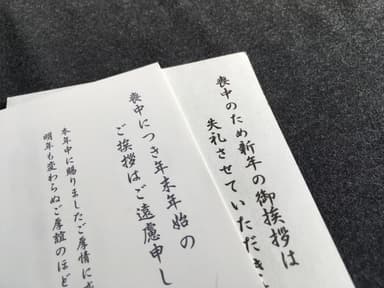 喪中のため新年の御挨拶は
失礼させていただき
喪中につき年末年始の
ご挨拶はご遠慮申し
本年中に賜りましたご厚情に
明年も変わらぬご厚誼のほど